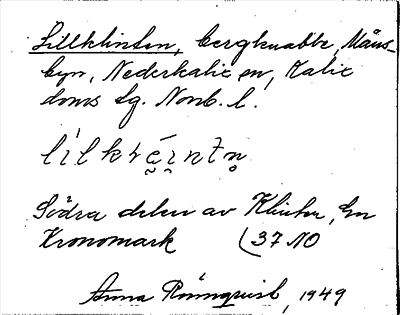 Lillklinten, bergknabbe, Måns-
byn, Nederkalix sn, Kalix
doms tg. Norrb. l.
Södra delen av Klinten, en
Kronomark (37 NO
Anna Rönnqvist, 1949